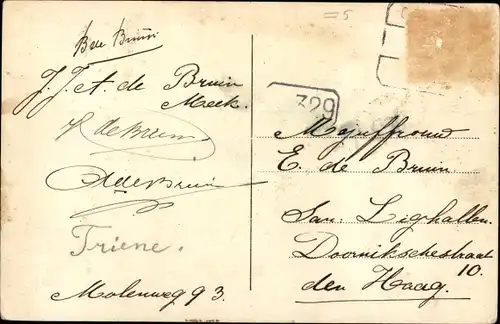 B de Bruin
J. J. A. de Bruin
Meek.
de Bruin
A de Bruin
Triene.
Molenweg 93.
=5
329
Mejuffrouw
E. de Bruin.
San. Lighallen.
Doorniksche straat
10.
den Haag.